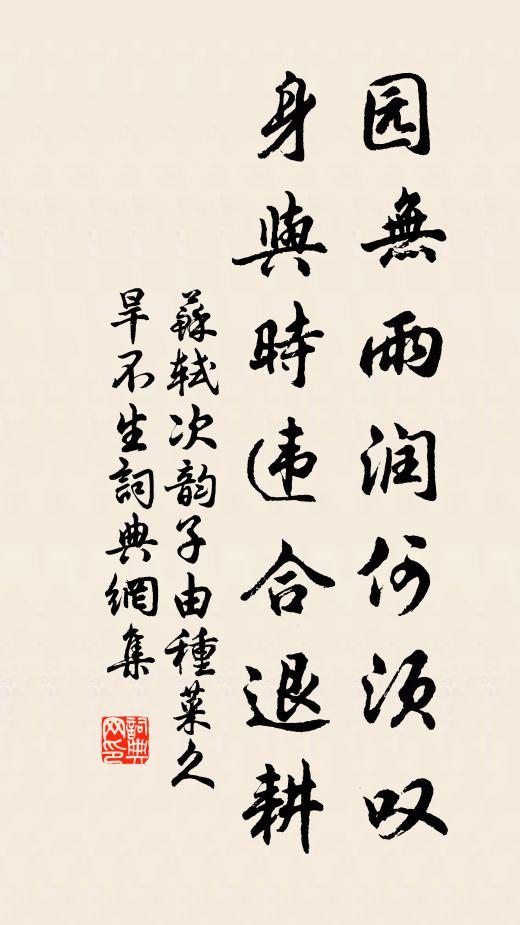 园無雨润何须叹
身與時违合退耕
蘇轼次韵子由種菜久
旱不生詞典網集
詞典
网印